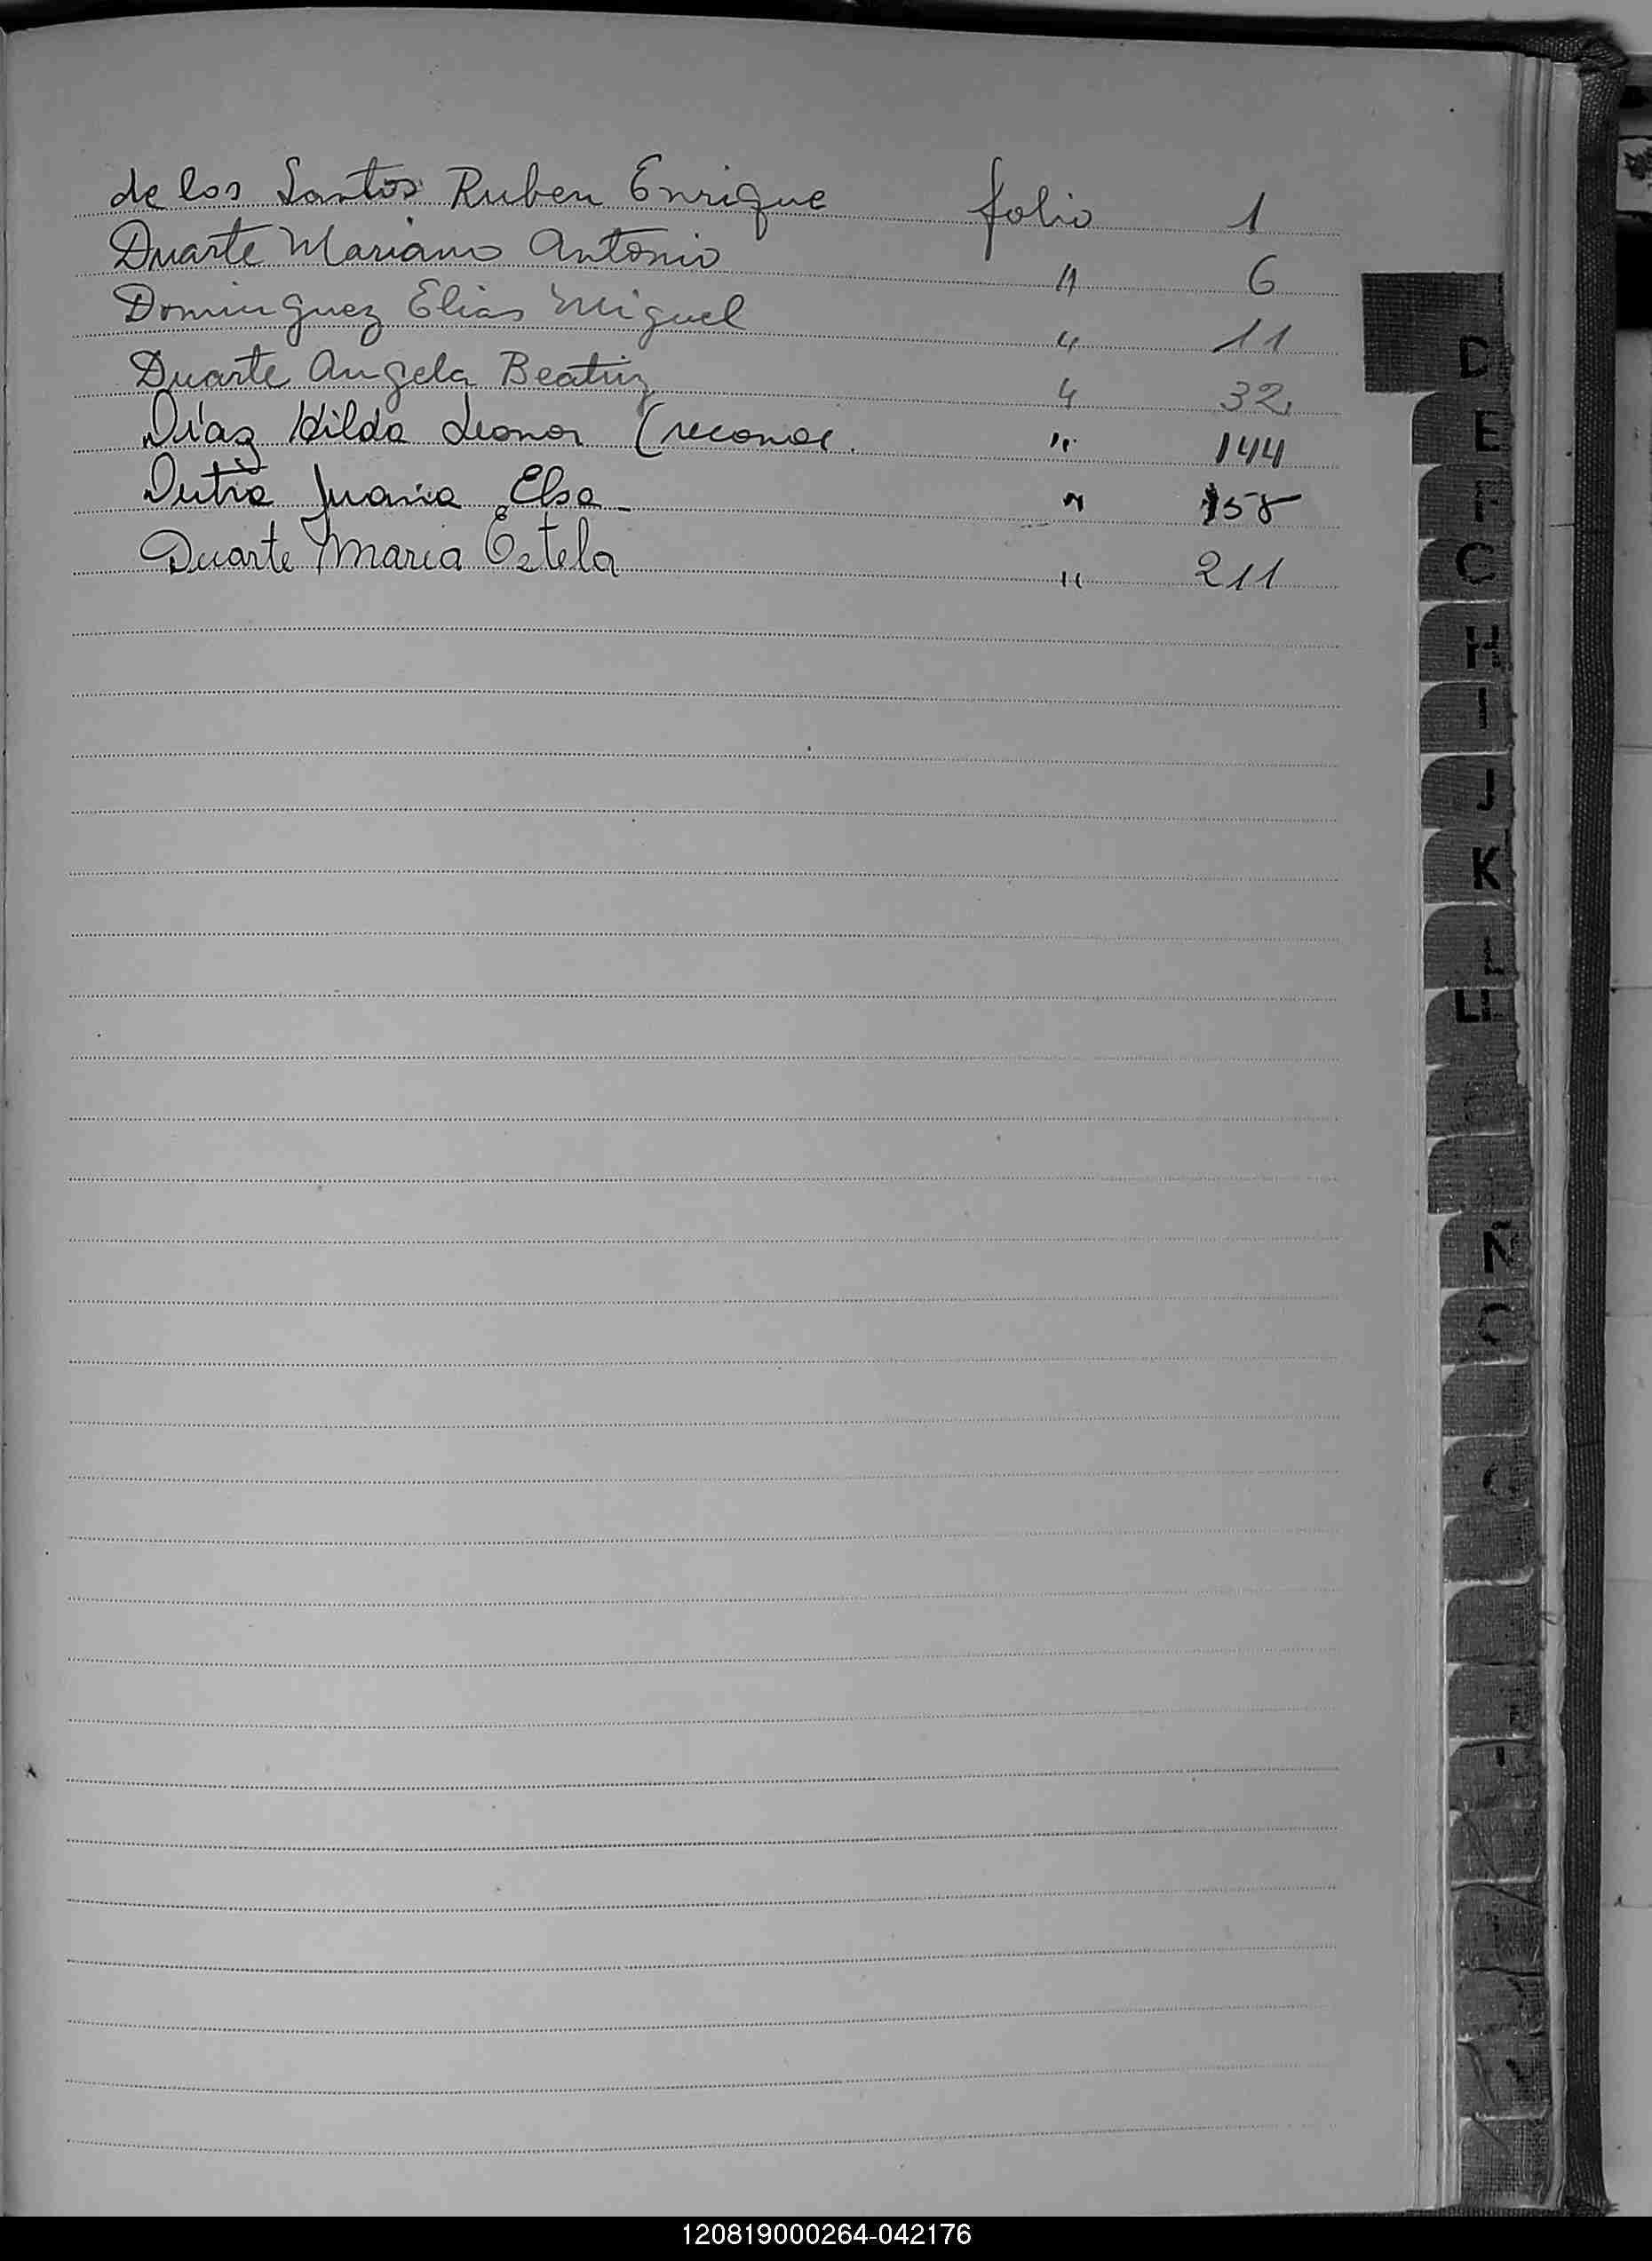 de los Santos Ruben Enrique folio 1
Duarte Mariano Antonio " 6
Dominguez Elias Miguel " 11
Duarte Angela Beatriz " 32
Díaz Hilda Leonor (reconoc. " 144
Dutra Juana Elsa " 158
Duarte Maria Estela " 211
D
E
F
G
H
I
J
K
L
LL
Ñ
O
Q
120819000264-042176